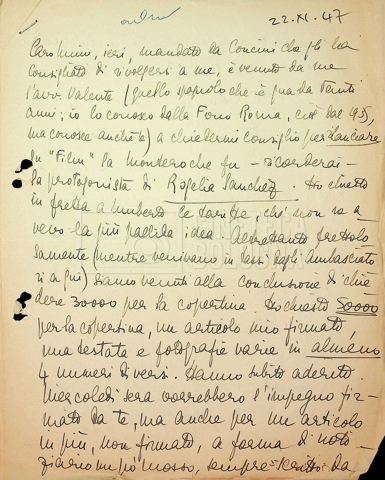 22.XI.47
Caro Mino, ieri, mandato da Concini che gli ha
consigliato di rivolgersi a me, è venuto da me
l'avv. Valente (quello spagnolo che è qua da venti
anni; io lo conosco dalla Fono Roma, cioè dal 935,
ma conosce anche te) a chiedermi consiglio per lanciare
su "Film" la Montero che fu - ricorderai -
la protagonista di Rogelia Sanchez. Ho chiesto
in fretta a Umberto le tariffe, chi non ne a-
vevo la più pallida idea.
(mentre venivano in taxi dagli ambasciato
ri a qui) siamo venuti alla conclusione di chie
dere 30000 per la copertina. Ho chiesto 50000
per la copertina, un articolo mio firmato,
una testata e fotografie varie in almeno
4 numeri diversi. Hanno subito aderito
mercoledì sera vorrebbero l'impegno fir-
mato da te, ma anche per un articolo
in più, non firmato, a forma di noti-
ziario un pò mosso, sempre scritto da